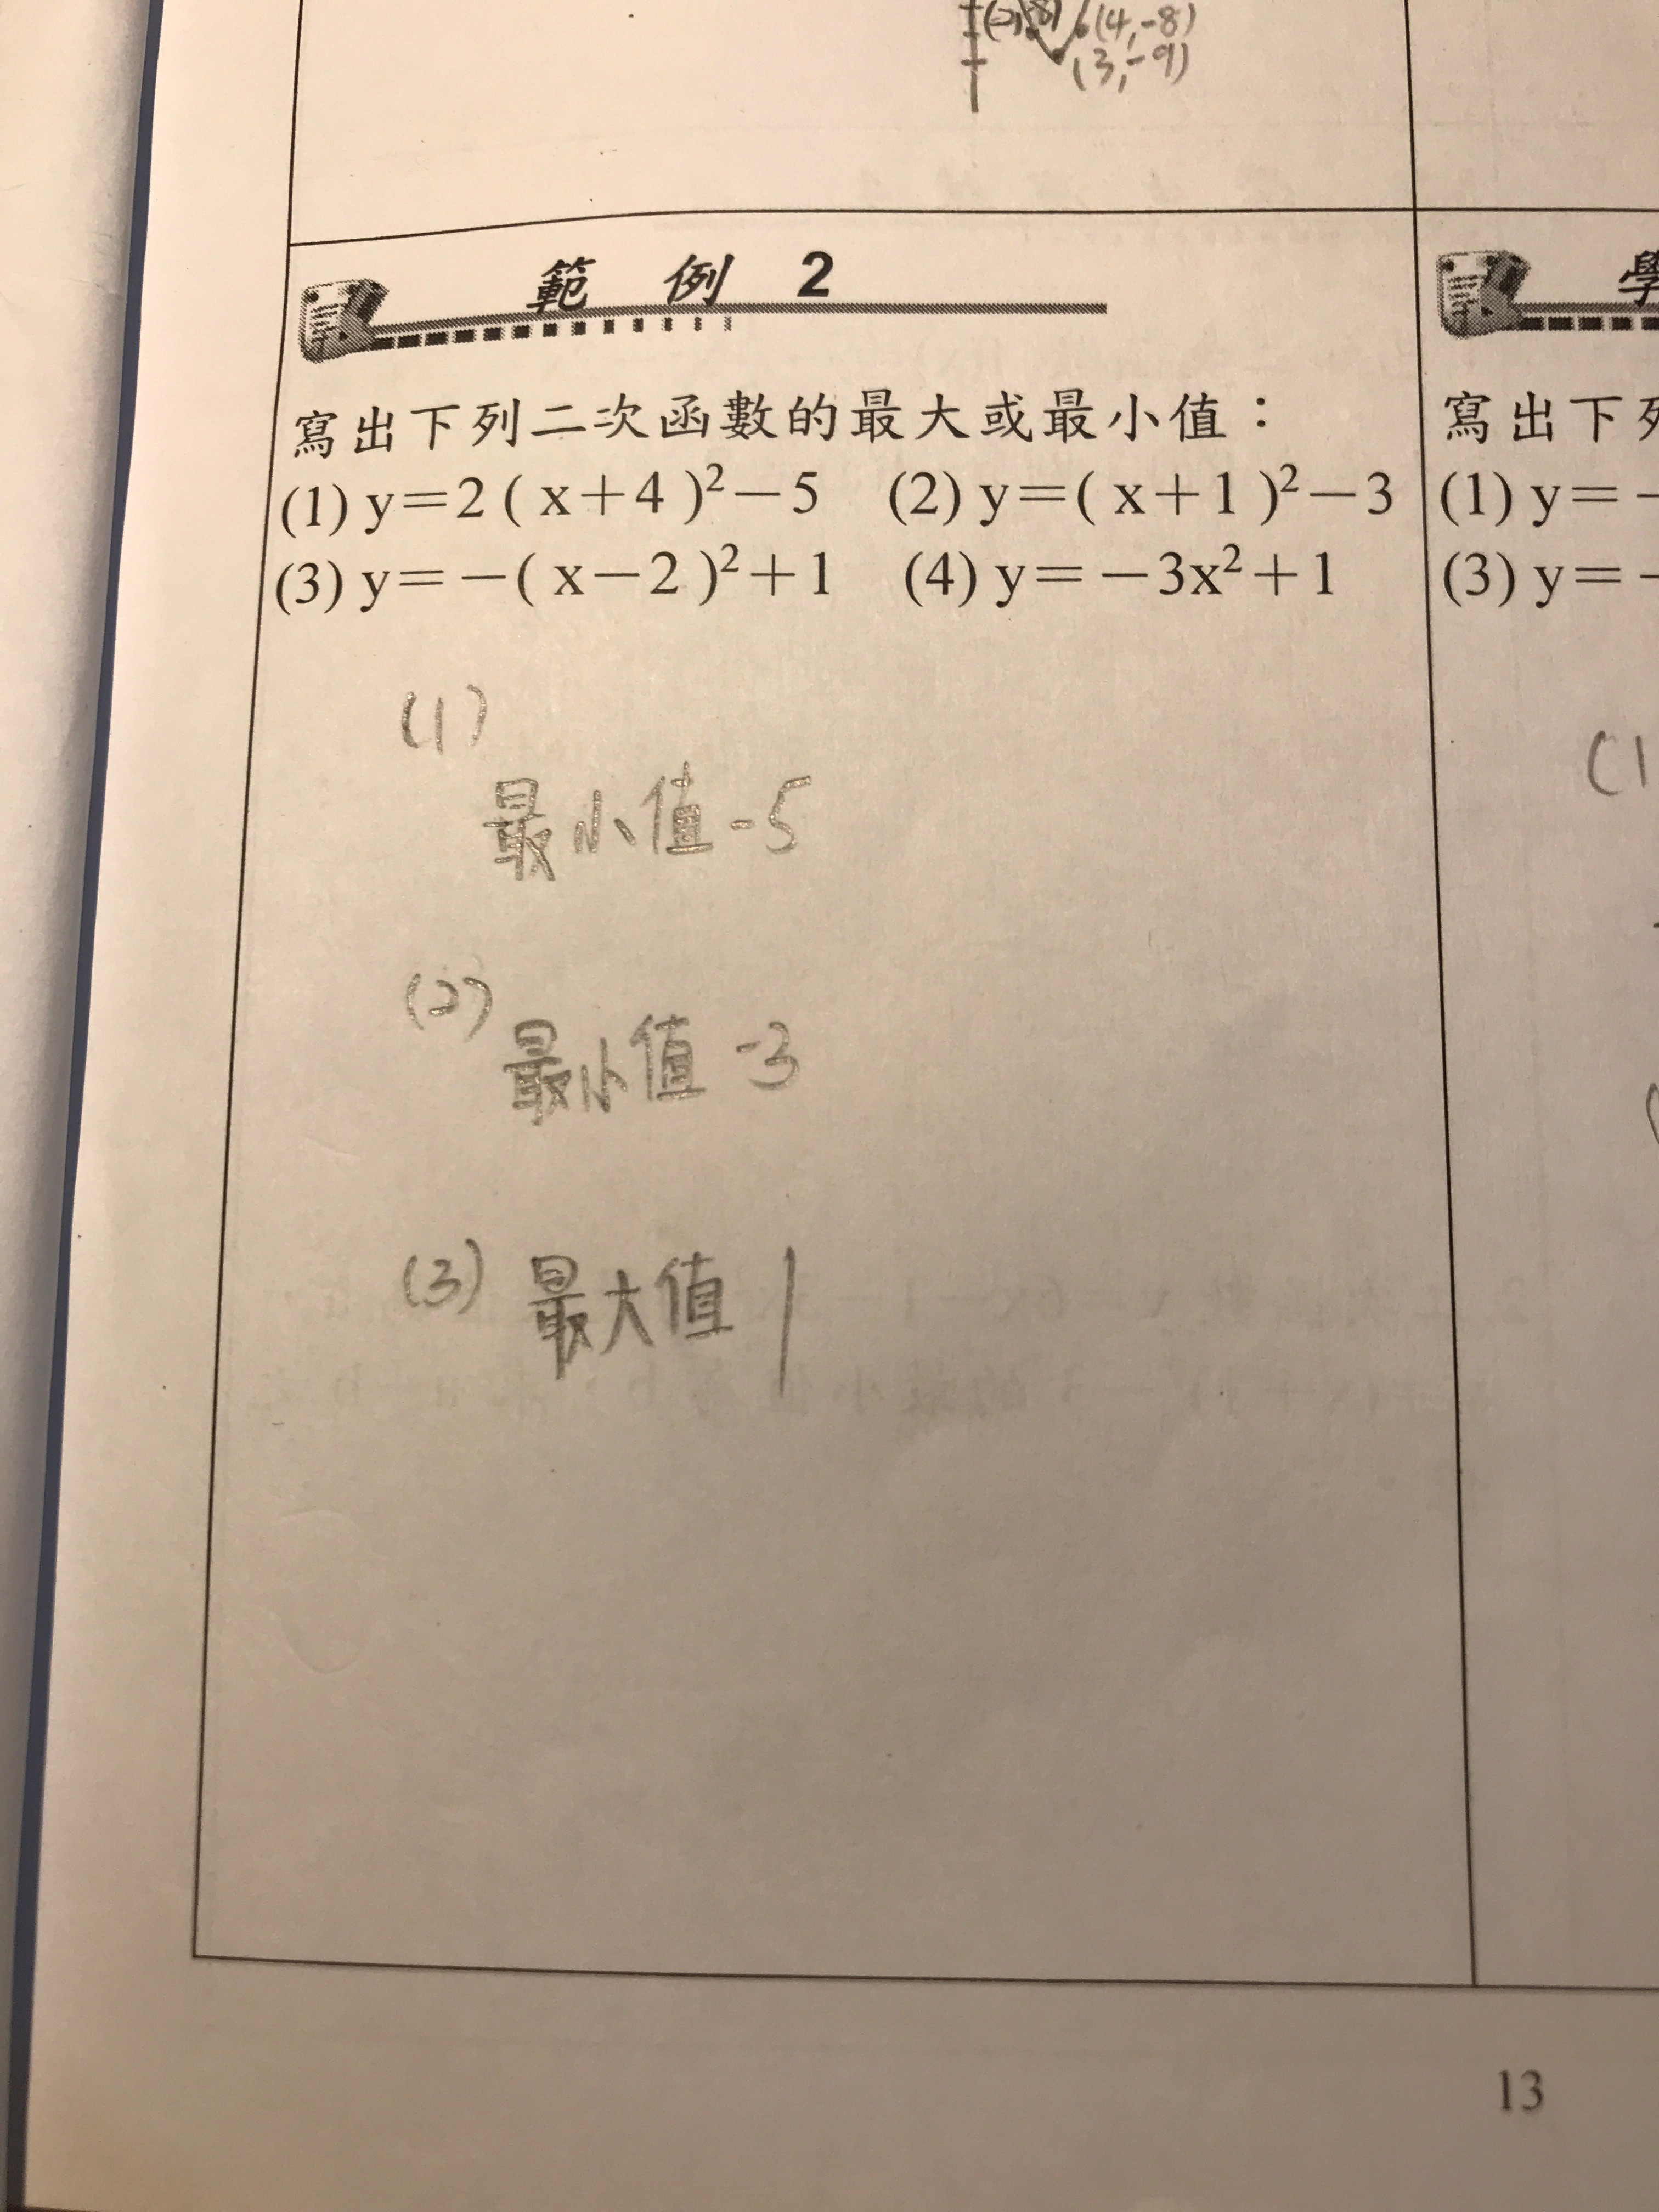 (4,-8)
(3,-9)
範例 2
寫出下列二次函數的最大或最小值：
(1) y＝2 ( x＋4 )²－5 (2) y＝( x＋1 )²－3
(3) y＝－( x－2 )²＋1 (4) y＝－3x²＋1
(1)
最小值 -5
(2)
最小值 -3
(3) 最大值 1
寫出下列
(1) y＝－
(3) y＝－
(1
13